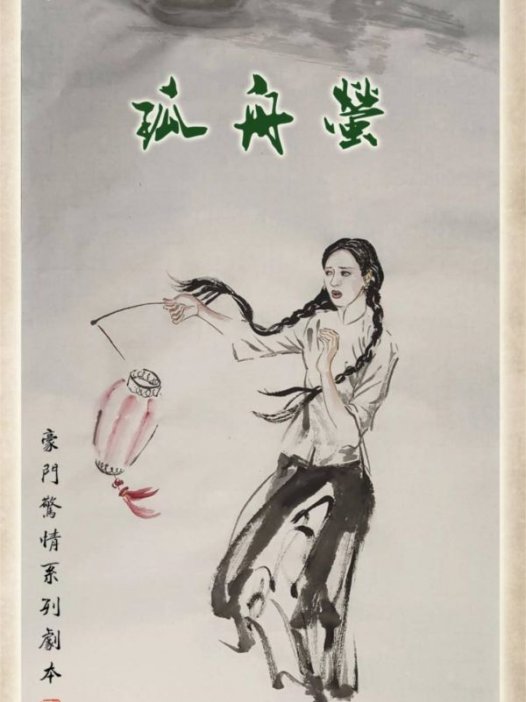 孤舟螢
豪門驚情系列劇本